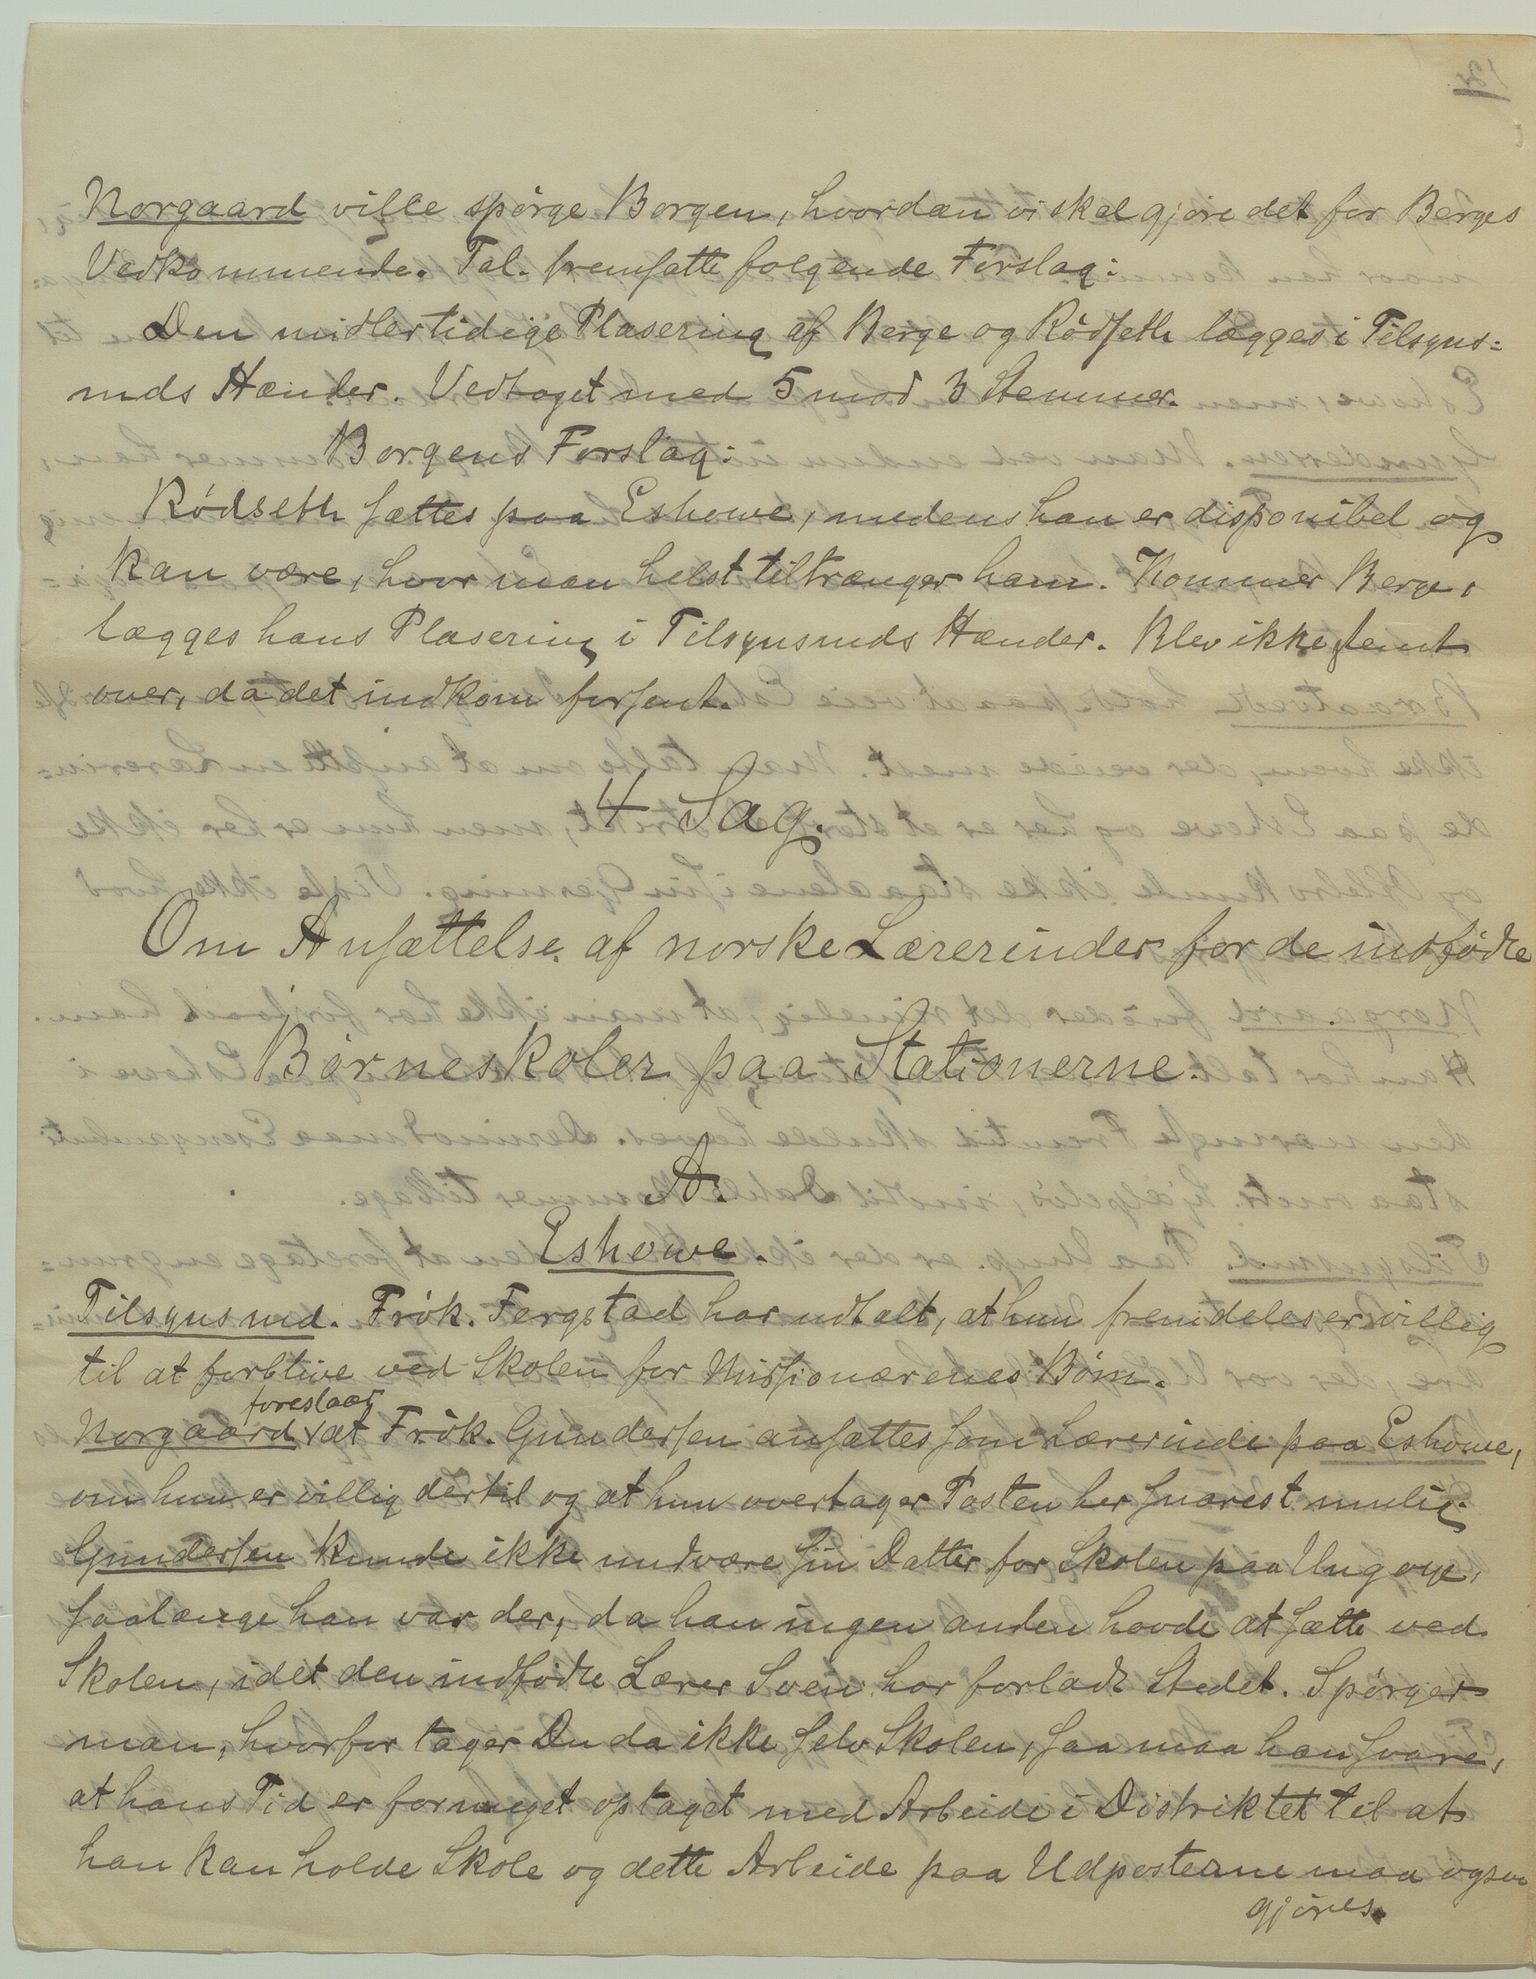 Norgaard ville spörge Borgen, hvordan vi skal gjöre det for Berges
Vedkommende. Tal. fremsatte følgende Forslag:
Den midlertidige Plasering af Berge og Rödseth lægges i Tilsyns-
mds Hænder. Vedtaget med 5 mod 3 Stemmer.
Borgens Forslag:
Rödseth sættes paa Eshowe, medens han er disponibel og
kan være, hvor man helst tiltrænger ham. Kommer Berge,
lægges hans Plasering i Tilsynsmds Hænder. Blev ikke stemt
over, da det indkom forsent.
4 Sag.
Om Ansættelse af norske Lærerinder for de indfödte
Börneskoler paa Stationerne.
A.
Eshowe.
Tilsynsmd. Frök. Fergstad har udtalt, at hun fremdeles er villig
til at forblive ved Skolen for Missionærenes Börn.
foreslaar
Norgaard √ at Frök. Gundersen ansættes som Lærerinde paa Eshowe,
om hun er villig dertil og at hun overtager Posten her snarest mulig.
Gundersen kunde ikke undvære sin Datter for Skolen paa Ungoye,
saalænge han var der, da han ingen anden havde at sætte ved
Skolen, idet den indfödte Lærer Sven har forladt Stedet. Spörger
man, hvorfor tager Du da ikke selv Skolen, saa maa han svare,
at hans Tid er formeget optaget med Arbeide i Distriktet til at
han kan holde Skole og dette Arbeide paa Udposterne maa ogsaa
gjöres.